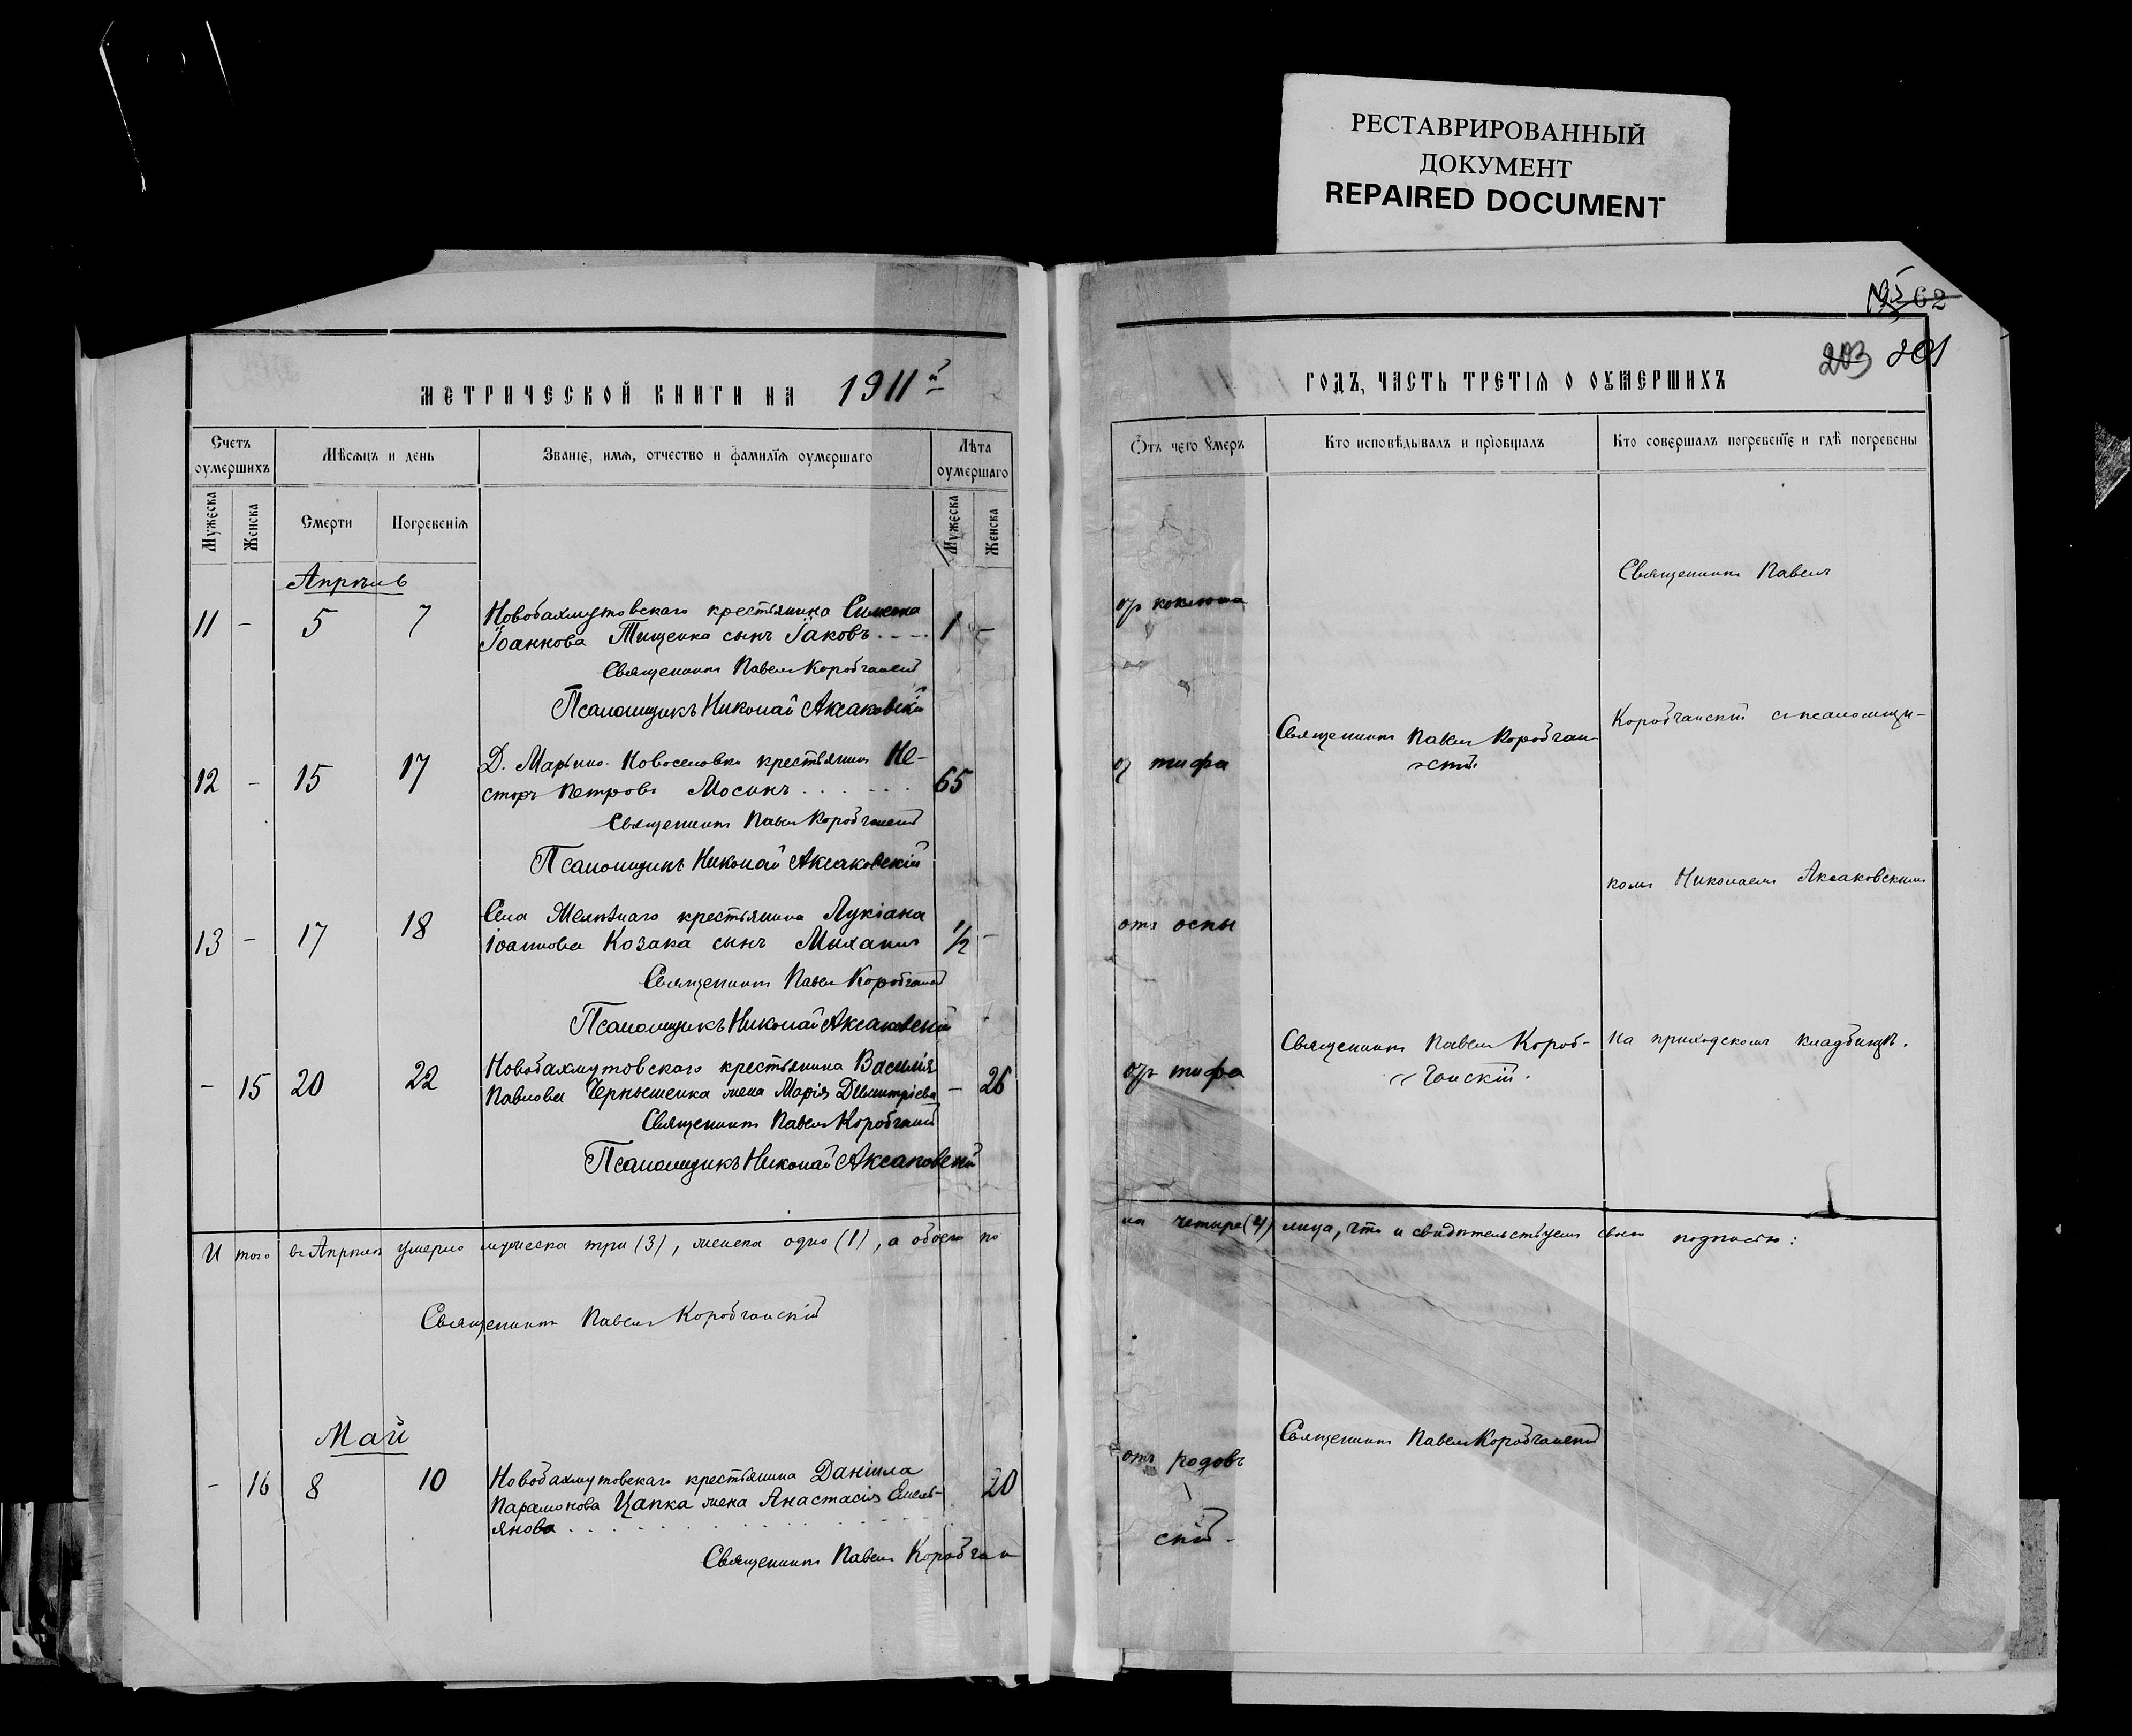 РЕСТАВРИРОВАННЫЙ
ДОКУМЕНТ
REPAIRED DOCUMENT
62
203 201
МЕТРИЧЕСКОЙ КНИГИ НА 1911й
Счетъ оумершихъ
Мѣсяцъ и день
Званіе, имя, отчество и фамилія оумершаго
Лѣта оумершаго
Мужеска
Женска
Смерти
Погребенія
Мужеска
Женска
Апрѣль
11 - 5 7 Новобахмутовскаго крестьянина Симеона
Іоаннова Тищенка сынъ Іаковъ . . . . 1 -
Священникъ Павелъ Коробчанскій
Псаломщикъ Николай Аксаковскій
12 - 15 17 Д. Марьино-Новоселовки крестьянинъ Не-
сторъ Петровъ Мосинъ . . . . . . 65
Священникъ Павелъ Коробчанскій
Псаломщикъ Николай Аксаковскій
13 - 17 18 Села крестьянина Лукіана
Іоаннова Козака сынъ Михаилъ 1/2 -
Священникъ Павелъ Коробчанскій
Псаломщикъ Николай Аксаковскій
- 15 20 22 Новобахмутовскаго крестьянина Василія
Павлова Чернышенка жена Марія Димитріева - 26
Священникъ Павелъ Коробчанскій
Псаломщикъ Николай Аксаковскій
Итого въ Апрѣлѣ умерло мужеска три (3), женска одно (1), а обоего по
Священникъ Павелъ Коробчанскій
Май
- 16 8 10 Новобахмутовскаго крестьянина Даніила
Парамонова Цапка жена Анастасія Емель-
янова . . . . . . . . . . 20
Священникъ Павелъ Коробчан
ГОДЪ, ЧАСТЬ ТРЕТІЯ О ОУМЕРШИХЪ
Отъ чего умеръ
Кто исповѣдывалъ и пріобщалъ
Кто совершалъ погребеніе и гдѣ погребены
Священникъ Павелъ
отъ коклюша
Коробчанскій съ псаломщи-
Священникъ Павелъ Коробчан-
скій.
отъ тифа
комъ Николаемъ Аксаковскимъ
отъ оспы
на приходскомъ кладбищѣ.
Священникъ Павелъ Короб-
чанскій.
отъ тифа
ла четыре (4) лица, что и свидѣтельствуемъ своею подписью:
Священникъ Павелъ Коробчанскій
отъ родовъ
скій.